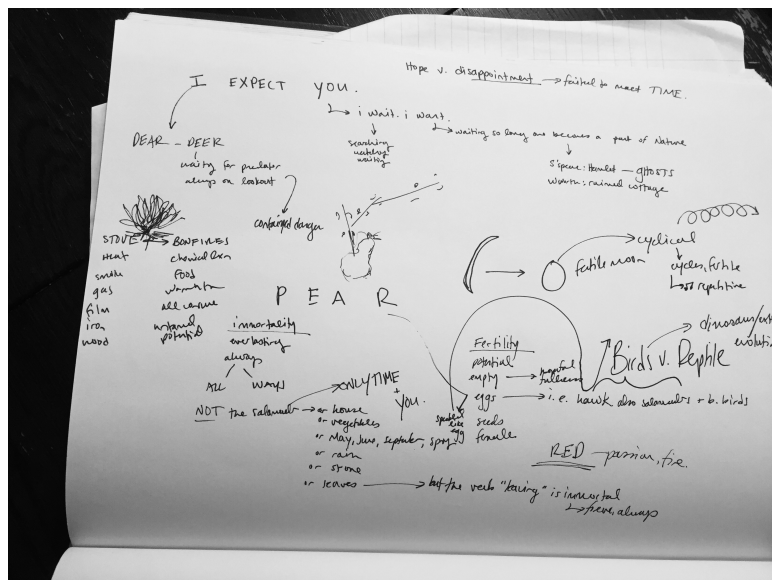 Hope v. disappointment → failed to meet TIME.
I EXPECT YOU.
i wait. i want.
searching
watching
waiting
waiting so long one becomes a part of Nature
S'speare: Hamlet — GHOSTS
W'worth: ruined cottage
DEAR - DEER
waiting for predator
always on lookout
contained danger
STOVE → BONFIRES
Heat
smoke
gas
film
iron
wood
food
warmth
all consume
untamed
potential
PEAR
immortality
everlasting
always
ALL WAYS
NOT the salamander
ONLY TIME
+
YOU.
or house
or vegetables
or May, June, September, spring
or rain
or stone
or leaves → but the verb "leaving" is immortal
forever, always
fertile moon
cyclical
cycles, fertile
repetitive
Fertility
potential
empty → hopeful
fullness
eggs → i.e. hawk also salamanders + b. birds
seeds
female
speckled
egg
Birds v. Reptile
dinosaurs/
evolution
RED passion, fire.